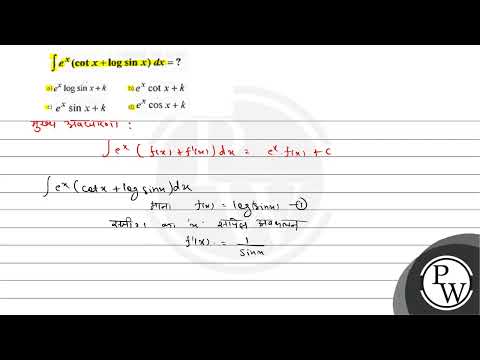 ∫ eˣ (cot x + log sin x) dx = ?
a) eˣ log sin x + k b) eˣ cot x + k
c) eˣ sin x + k d) eˣ cos x + k
मुख्य अवधारणा :
∫ eˣ ( f(x) + f'(x) ) dx = eˣ. f(x) + c
∫ eˣ ( cot x + log sin x ) dx
माना f(x) = log(sin x) —①
का 'x' सापेक्ष अवकलन
f'(x) = 1/sin x
P
W